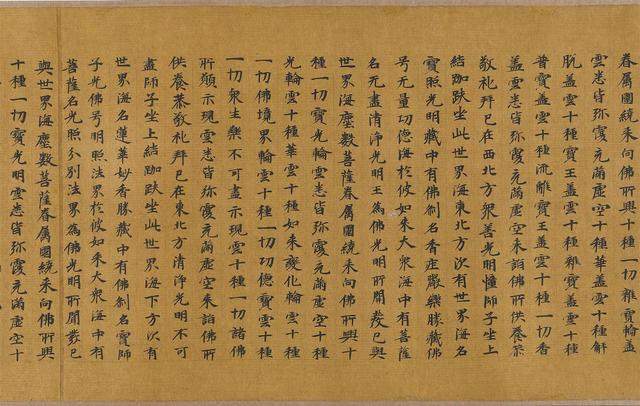 眷属圍繞來向佛所興十種一切雜寶輪蓋
雲悉皆弥覆充滿虛空十種華蓋雲十種解
脫蓋雲十種寶王蓋雲十種雜寶蓋雲十種
普寶蓋雲十種流離寶王蓋雲十種一切香
蓋雲悉皆弥覆充滿虛空來詣佛所供養恭
敬礼拜已在西北方衆善光明幢師子坐上
結跏趺坐此世界海東北方次有世界海名
寶照光明藏中有佛剎名香庄嚴樂勝藏佛
号无量功德海於彼如來大衆海中有菩薩
名无盡清淨光明王為佛光明所開發已與
世界海塵數菩薩眷属圍繞來向佛所興十
種一切寶光輪雲悉皆弥覆充滿虛空十種
光輪雲十種華雲十種如來變化輪雲十種
一切佛境界輪雲十種一切功德寶雲十種
一切衆生樂不可盡示現雲十種一切諸佛
所願示現雲悉皆弥覆充滿虛空來詣佛所
供養恭敬礼拜已在東北方清淨光明不可
盡師子坐上結跏趺坐此世界海下方次有
世界海名蓮華妙香勝藏中有佛剎名寶師
子光佛号明照法界於彼如來大衆海中有
菩薩名光照分別法界為佛光明所開發已
與世界海塵數菩薩眷属圍繞來向佛所興
十種一切寶光明雲悉皆弥覆充滿虛空十